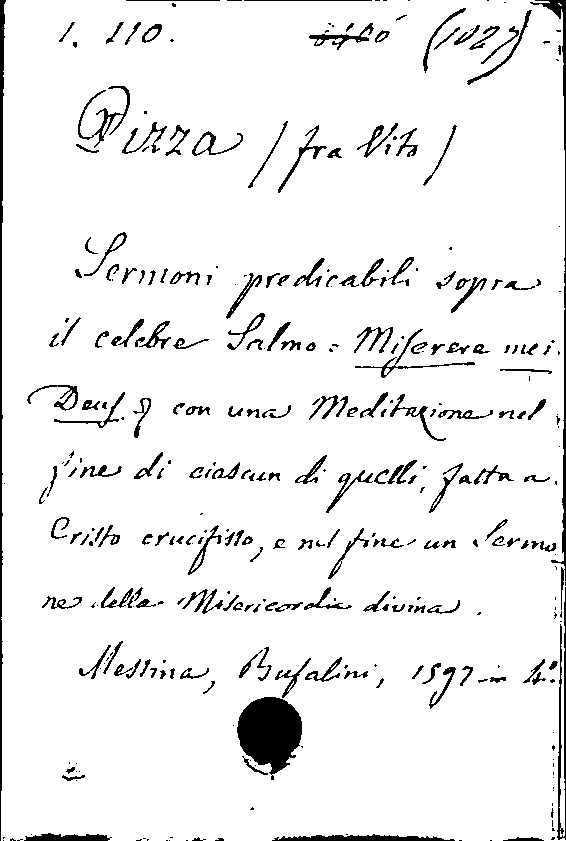 1. 110. (1027)
Pizza / fra Vito /
Sermoni predicabili sopra
il celebre Salmo = Miserere mei
Deus. con una Meditazione nel
fine di ciascun di quelli, fatta a
Cristo crucifisso, e nel fine un Sermo
ne della Misericordia divina.
Messina, Bufalini, 1597 in 4º.